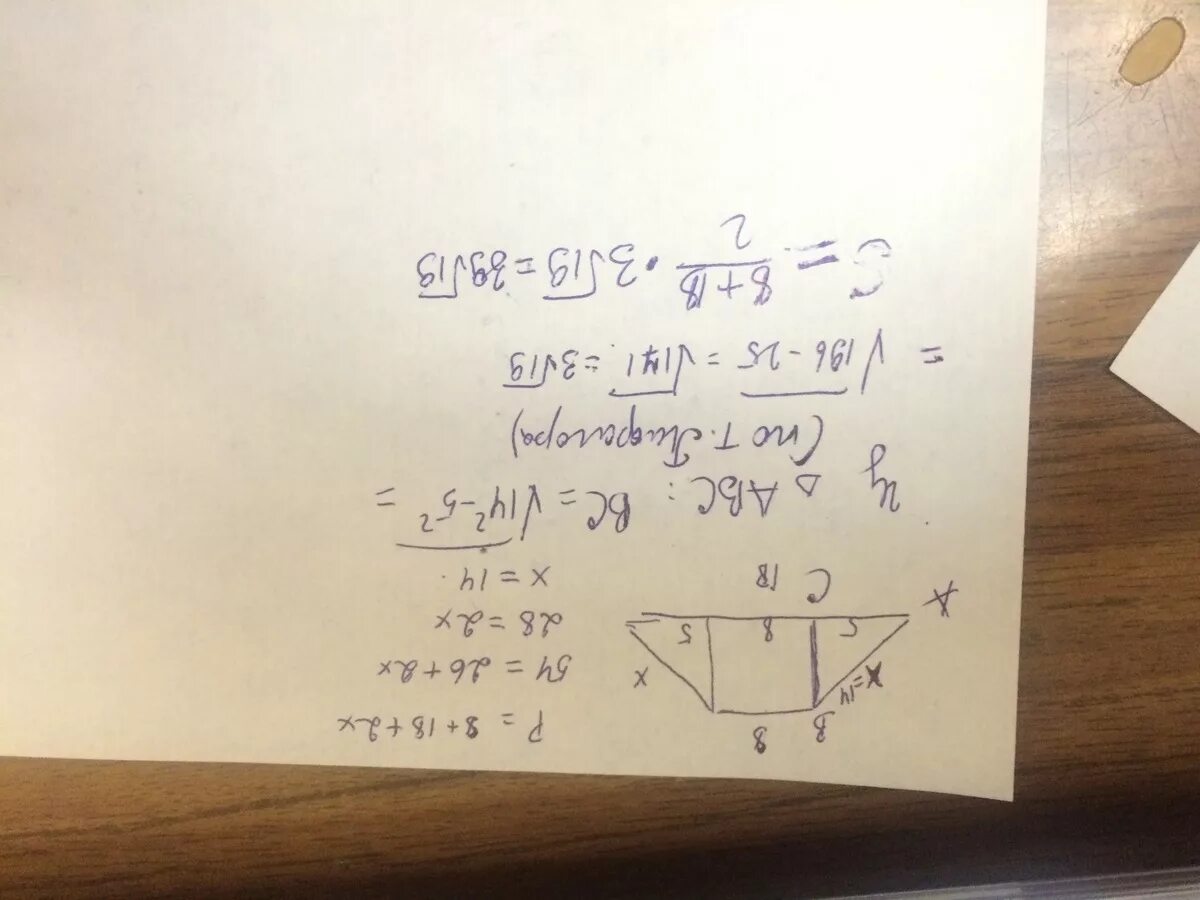 8
B
x=14
x
5
8
5
A
C
18
P = 8+18+2x
54 = 26+2x
28 = 2x
x = 14
Из △ ABC: BC = √14²-5² =
(по т. Пифагора)
= √196-25 = √171 = 3√19
S = 8+18/2 · 3√19 = 39√19